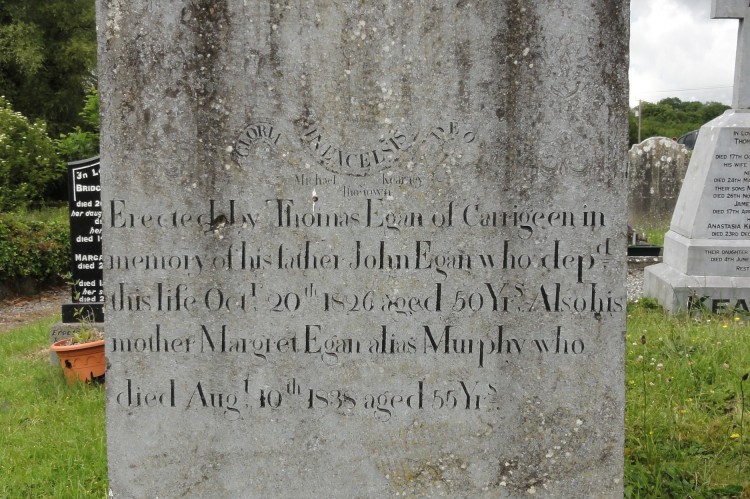 GLORIA IN EXCELSIS DEO
Michael Kearney
Thetown
Erected by Thomas Egan of Carrigeen in
memory of his father John Egan who depd
this life Octr 20th 1826 aged 50 Yrs Also his
mother Margret Egan alias Murphy who
died Augt 10th 1838 aged 55 Yrs
IN LO
BRIDG
died 2
her daug
died 1
MARGA
died 2
died
her s
died 2
IN LO
THOM
DIED 17TH OC
HIS WIFE
DIED 24TH MA
THEIR SONS
DIED 26TH NOV
JAME
DIED 17TH APR
ANASTASIA KE
DIED 23RD DEC
THEIR DAUGHTER
DIED 4TH JUNE
REST
KEA